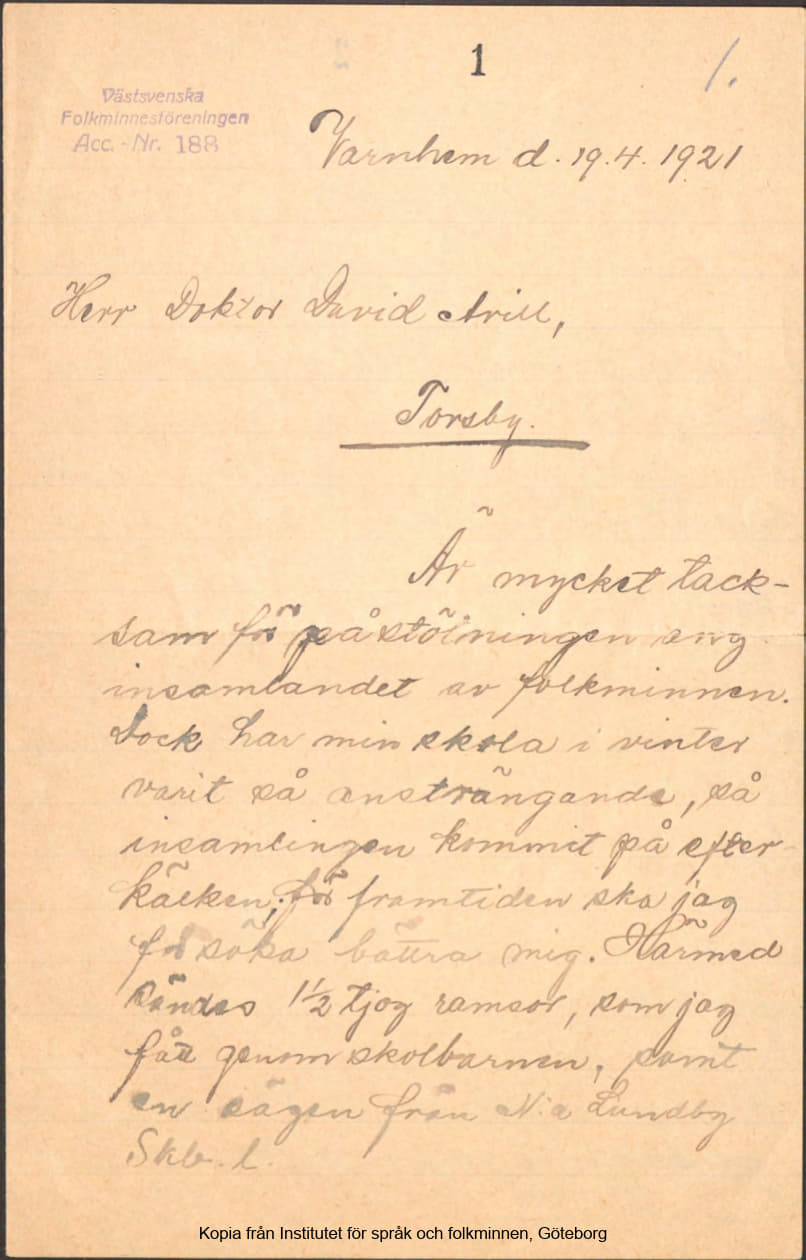 1
1.
Västsvenska
Folkminnesföreningen
Acc. - Nr. 188
Varnhem d. 19.4. 1921
Herr Doktor David Arill,
Torsby.
Är mycket tack-
sam för påstötningen ang
insamlandet av folkminnen.
Dock har min skola i vinter
varit så ansträngande, så
insamlingen kommit på efter
kälken; för framtiden ska jag
försöka bättra mig. Härmed
sändes 1½ tjog ramsor, som jag
fått genom skolbarnen, samt
en sägen från N:a Lundby
Skb. l.
Kopia från Institutet för språk och folkminnen, Göteborg